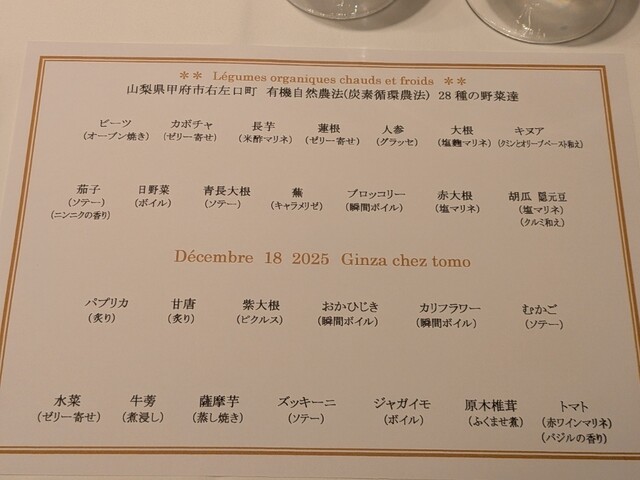 ** Légumes organiques chauds et froids **
山梨県甲府市右左口町 有機自然農法(炭素循環農法) 28種の野菜達
ビーツ カボチャ 長芋 蓮根 人参 大根 キヌア
(オーブン焼き) (ゼリー寄せ) (米酢マリネ) (ゼリー寄せ) (グラッセ) (塩麹マリネ) (クミンとオリーブペースト和え)
茄子 日野菜 青長大根 蕪 ブロッコリー 赤大根 胡瓜 隠元豆
(ソテー) (ボイル) (ソテー) (キャラメリゼ) (瞬間ボイル) (塩マリネ) (塩マリネ)
(ニンニクの香り) (クルミ和え)
Décembre 18 2025 Ginza chez tomo
パプリカ 甘唐 紫大根 おかひじき カリフラワー むかご
(炙り) (炙り) (ピクルス) (瞬間ボイル) (瞬間ボイル) (ソテー)
水菜 牛蒡 薩摩芋 ズッキーニ ジャガイモ 原木椎茸 トマト
(ゼリー寄せ) (煮浸し) (蒸し焼き) (ソテー) (ボイル) (ふくませ煮) (赤ワインマリネ)
(バジルの香り)